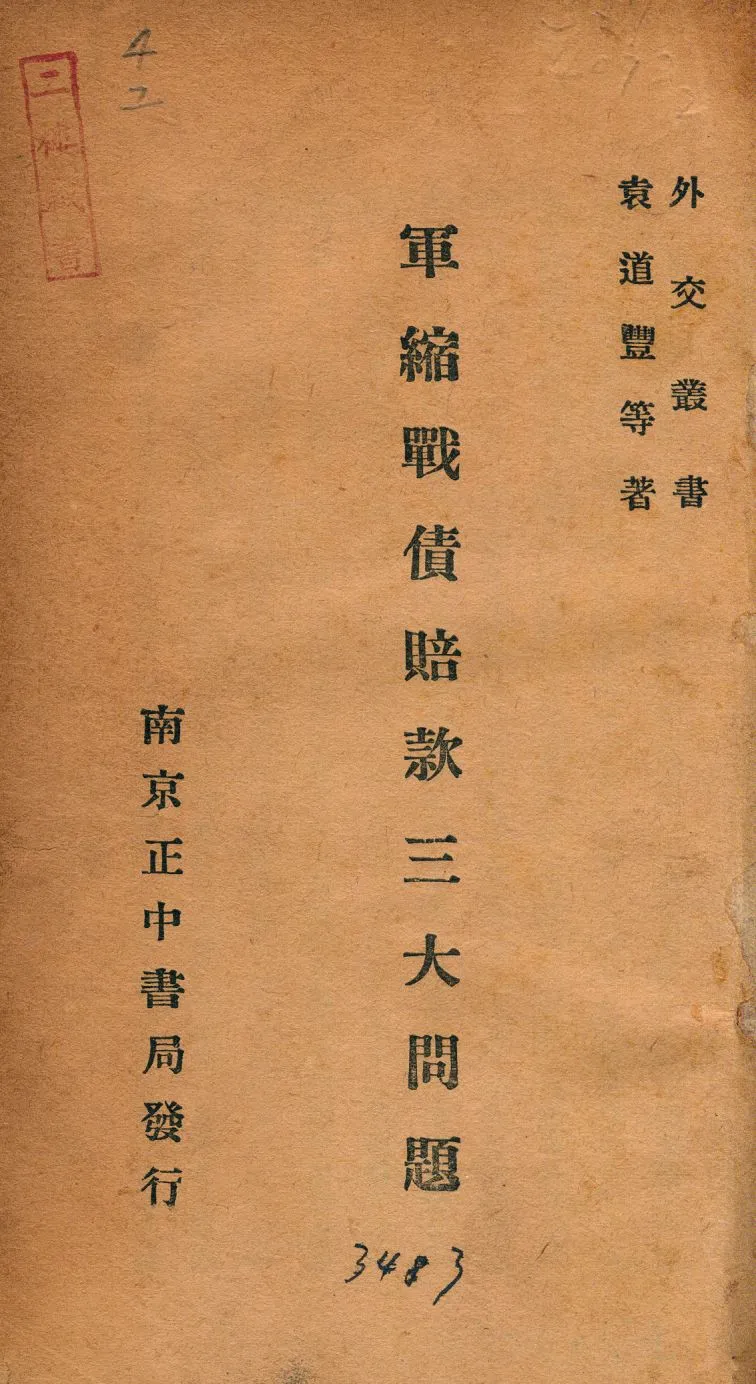 外交叢書
袁道豐等著
軍縮戰債賠款三大問題
南京正中書局發行
3483